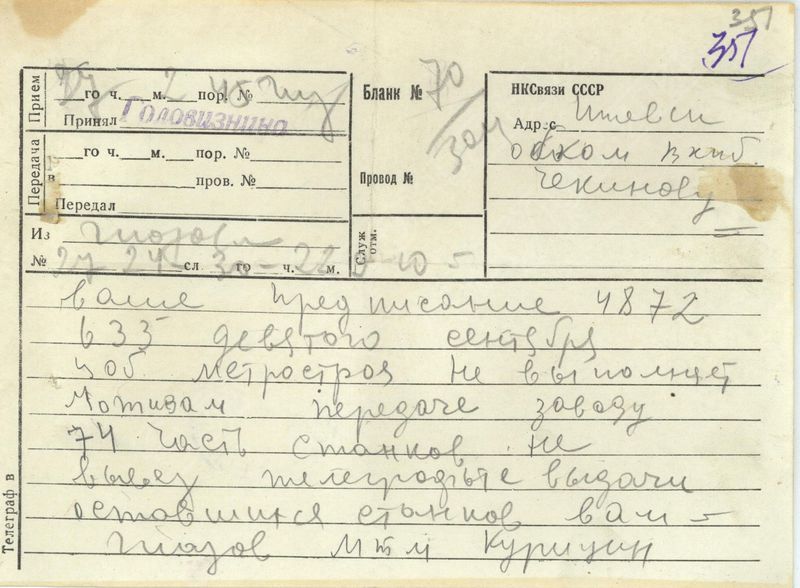 351
351
Прием
го ч. 2 м. 45 пор. №
Принял Головизнина
Передача
го ч. м. пор. №
в пров. №
Передал
Из Глазова
№ 27 24 сл. 30 го 22 ч. 10 м.
Бланк № 70
Провод №
Служ. отм.
НКСвязи СССР
Адрес Ижевск
обком вкпб.
Чекинову
ваше предписание 4872
633 девятого сентября
метростроя не выполняет
мотивам передаче заводу
74 часть станков не
вывез телеграфьте выдачи
оставшихся станков вам -
Глазов Курицин
Телеграф в